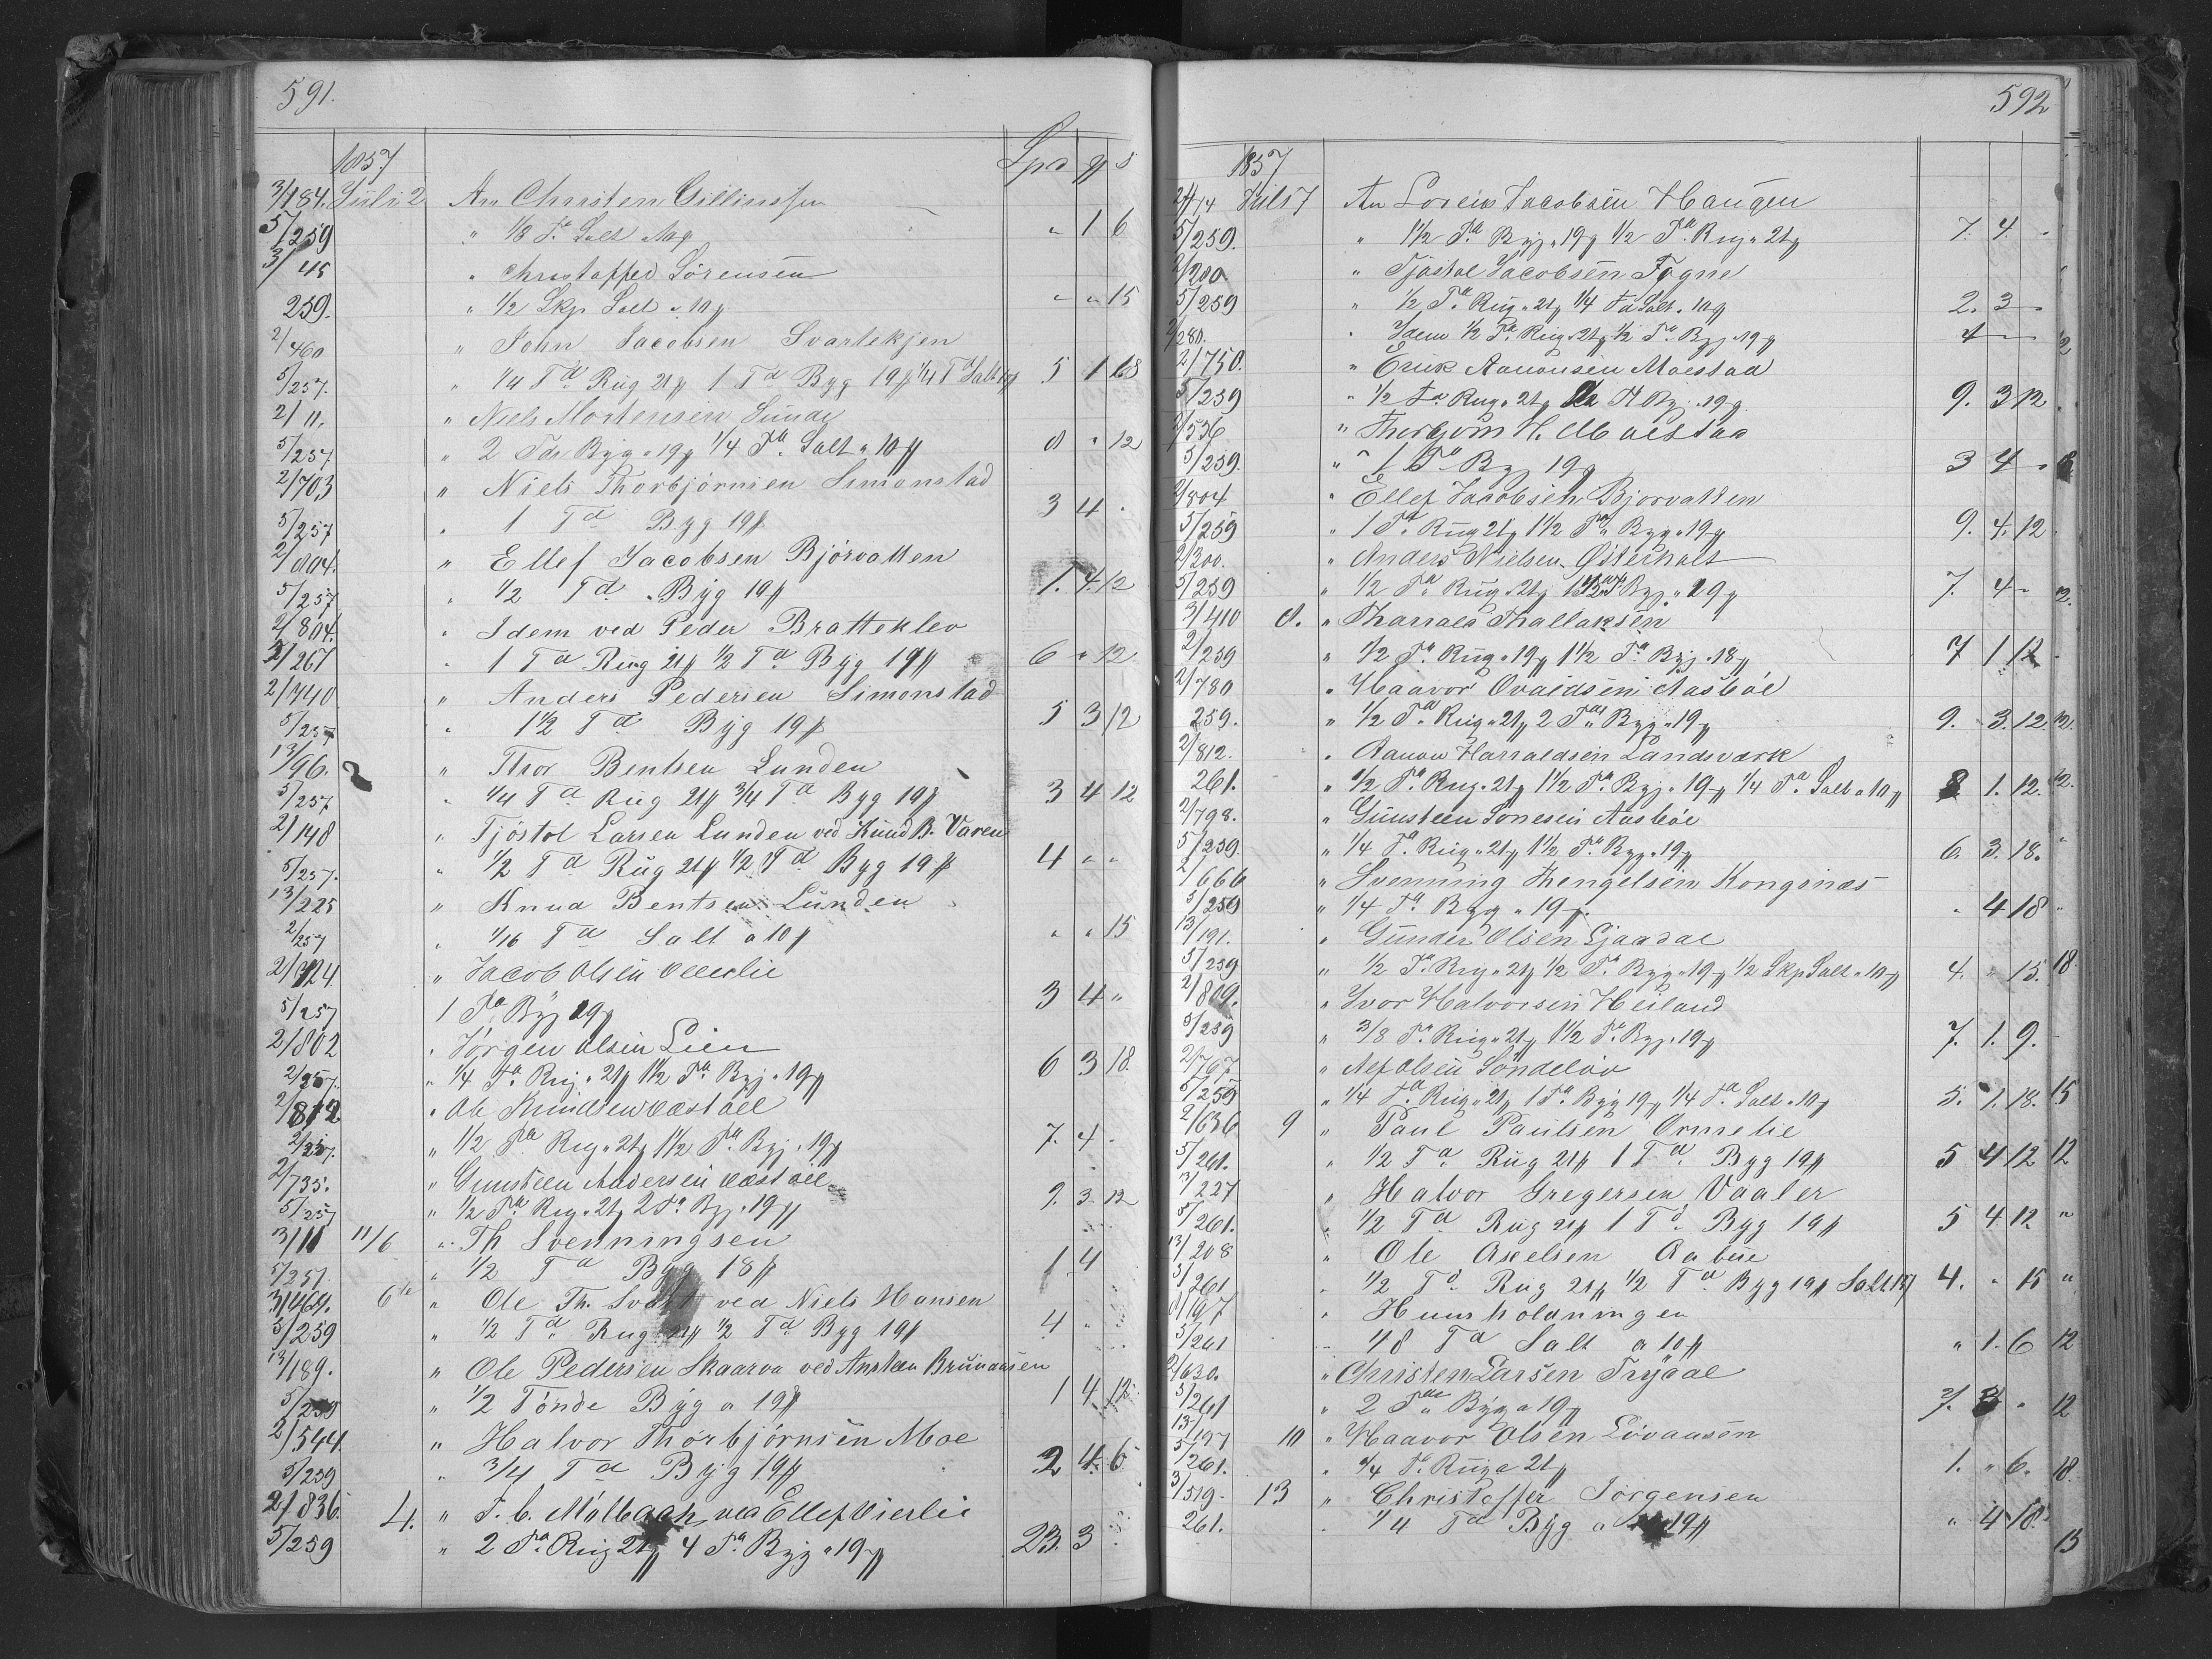 591.
1857 Spd ₰ s
3/184. Juli 2 An Christen Gillinssen
5/259 " 1/8 Td Salt " 1 6
3/45 " Christoffer Sörensen
259. " 1/2 Skp Salt a 10 " " 15
2/460 " John Jacobsen Svartekjen
5/257. " 1/4 Td Rug 21 1 Td Byg 19 1/4 Td Salt 5 1 18
2/11. " Niels Mortensen Sunde
5/257 " 2 Tdr Byg a 19 1/4 Td Salt a 10 8 " 12
2/703 " Niels Thorbjörnsen Simonstad
5/257 " 1 Td Byg 19 3 4 "
2/804. " Ellef Jacobsen Bjórvatten
5/257 " 1/2 Td Byg 19 1. 4. 12
2/804. " Idem ved Peder Bratteklev
5/267 " 1 Td Rug 21 1/2 Td Byg 19 6 " 12
2/740 " Anders Pedersen Simonstad
5/257 " 1 1/2 Td Byg 19 5 3 12
13/96. " Thor Bentsen Lunden
5/257 " 1/4 Td Rug 21 3/4 Td Byg 19 3 4 12
2/148 " Tjöstol Larsen Lunden ved Knud B. Varen
5/257. " 1/2 Td Rug 21 1/2 Td Byg 19 4 " "
13/225 " Knud Bentsen Lunden
2/257 " 1/16 Td Salt a 10 " " 15
2/924 " Jacob Olsen
5/257 1 Td Byg 19 3 4 "
2/802 " Jörgen Olsen Lien
2/257. " 1/4 Td Rug a 21 1 1/2 Td Byg a 19 6 3 18
2/812 " Ole Knudsen
2/257. " 1/2 Td Rug a 21 1 1/2 Td Byg a 19 7. 4 -
2/735. " Gunsteen Andersen
5/257 " 1/2 Td Rug a 21 2 Td Byg a 19 9. 3. 12
3/11 11/6 " Th Svenningsen
5/257 " 1/2 Td Byg 18 1 4
3/469. 6te " Ole Th. ved Niels Hansen
5/259 " 1/2 Td Rug 21 1/2 Td Byg 19 4 "
13/189. " Ole Pedersen Skaarva ved
5/259 " 1/2 Tönde Byg a 19 1 4 12
2/544. " Halvor Thorbjörnsen Moe
5/259 " 3/4 Td Byg 19 2 4 6
2/836. 4. " T. C. Mölbach ved Ellef
5/259 " 2 Td Rug 21 4 Td Byg a 19 23. 3
592
1857
Juli 7 An Lorens Jacobsen Haugen
5/259. " 1 1/2 Td Byg a 19 1/2 Td Rug a 21 7. 4. "
2/200 " Tjöstol Jacobsen Fogne
5/259 " 1/2 Td Rug a 21 1/4 Td Salt a 10 2. 3 -
2/280. " Idem 1/2 Td Rug a 21 1/2 Td Byg a 19 4 -
2/750. " Erick Aanonsen Moestad
5/259 " 1/2 Td Rug a 21 Byg a 19 9. 3 12
2/536 " Thorbjörn H. Moestad
5/259. " 1 Td Byg 19 3 4 -
2/804 " Ellef Jacobsen Bjorvatten
5/259 " 1 Td Rug 21 1 1/2 Td Byg a 19 9. 4. 12
2/300. " Anders Nielsen Österholt
5/259 " 1/2 Td Rug a 21 1 1/2 Td Byg a 19 7. 4 -
3/410 8. " Tharald Thallaksen
2/259 " 1/2 Td Rug a 19 1 1/2 Td Byg a 18 7 1 12
2/780 " Haavor Ovaldsen Aasböe
259. " 1/2 Td Rug a 21 2 Tdr Byg a 19 9. 3. 12.
2/812. " Aanon Harraldsen Landsværk
261. " 1/2 Td Rug a 21 1 1/2 Td Byg a 19 1/4 Td Salt a 10 8 1. 12.
2/798. " Gunsteen Sonesen Aasböe
5/259 " 1/4 Td Rug a 21 1 1/2 Td Byg a 19 6. 3. 18.
2/666 " Svenning Thengelsen Kongsnæs
5/259 " 1/4 Td Byg a 19 " 4 18
13/191. " Gunder Olsen Ljaadal
5/259 " 1/2 Td Rug a 21 1/2 Td Byg a 19 1/2 Skp Salt a 10 4. " 15.
2/809. " Ivor Halvorsen Heiland
5/259 " 3/8 Td Rug a 21 1 1/2 Td Byg a 19 7. 1. 9.
2/767 " Nef Olsen Söndeløv
5/259 " 1/4 Td Rug a 21 1 Td Byg 19 1/4 Td Salt a 10 5. 1. 18.
2/636 9 " Paul Paulsen Ormelie
5/261. " 1/2 Td Rug 21 1 Td Byg 19 5 4 12
13/227 " Halvor Gregersen Vaaler
5/261. " 1/2 Td Rug 21 1 Td Byg 19 5 4 12
13/208 " Ole Axelsen Aabue
5/261 " 1/2 Td Rug 21 1/2 Td Byg 19 Salt 4. " 15
" Huusholdningen
5/261 " 48 Td Salt a 10 " 1. 6
2/630. " Christen Larsen Trydal
5/261 " 2 Tdr Byg a 19 7. 3 "
13/197 10 " Haavor Olsen Lövaasen
5/261. " 1/4 Td Rug a 21 1. " 6.
3/519. 13 " Christoffer Jörgensen
261. " 1/4 Td Byg a 19 " 4 18.